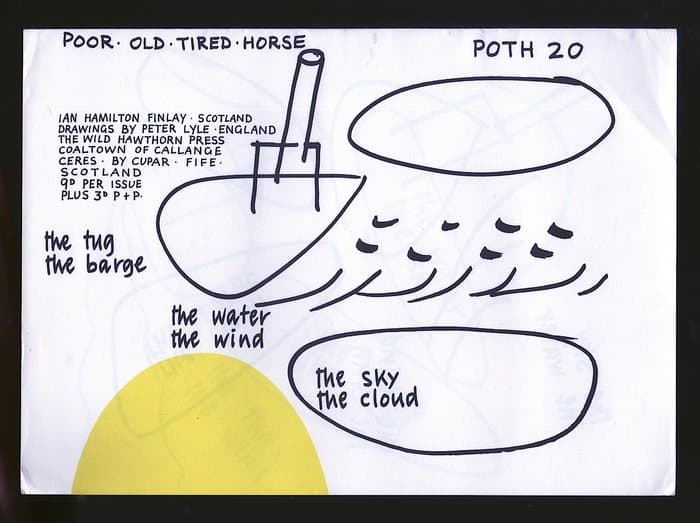 POOR · OLD · TIRED · HORSE
POTH 20
IAN HAMILTON FINLAY · SCOTLAND
DRAWINGS BY PETER LYLE · ENGLAND
THE WILD HAWTHORN PRESS
COALTOWN OF CALLANGE
CERES · BY CUPAR · FIFE ·
SCOTLAND
9D PER ISSUE
PLUS 3D P + P.
the tug
the barge
the water
the wind
the sky
the cloud